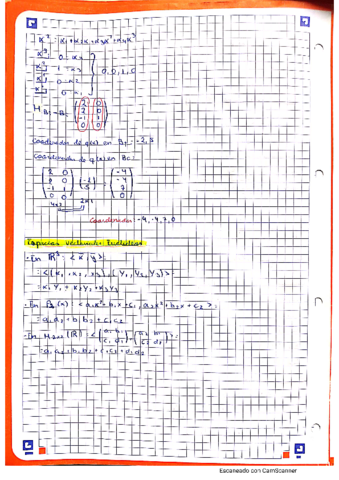 x² = α₁+α₂x+α₃x²+α₄x³
x³ 0=α₄
x² 1=α₃
x¹ 0=α₂
x⁰ 0=α₁
} 0,0,1,0
Coordenadas de q(x) en B_T = -2,5
Coordenadas de q(x) en B_C:
( 2 0
0 0
-1 1
0 0 ) (-2
5) = (-4
-4
7
0)
4x2 2x1
Coordenadas: -4,-4,7,0
Espacios Vectoriales Euclídeos
- En ℝ³: <x,y> =
= <(x₁,x₂,x₃),(y₁,y₂,y₃)> =
= x₁y₁+x₂y₂+x₃y₃
- En P₂(x) = <a₁x²+b₁x+c₁, a₂x²+b₂x+c₂> =
= a₁a₂+b₁b₂+c₁c₂
- En M₂ₓ₂(ℝ) = <(a₁ b₁
c₁ d₁), (a₂ b₂
c₂ d₂)> =
= a₁a₂+b₁b₂+c₁c₂+d₁d₂
Escaneado con CamScanner